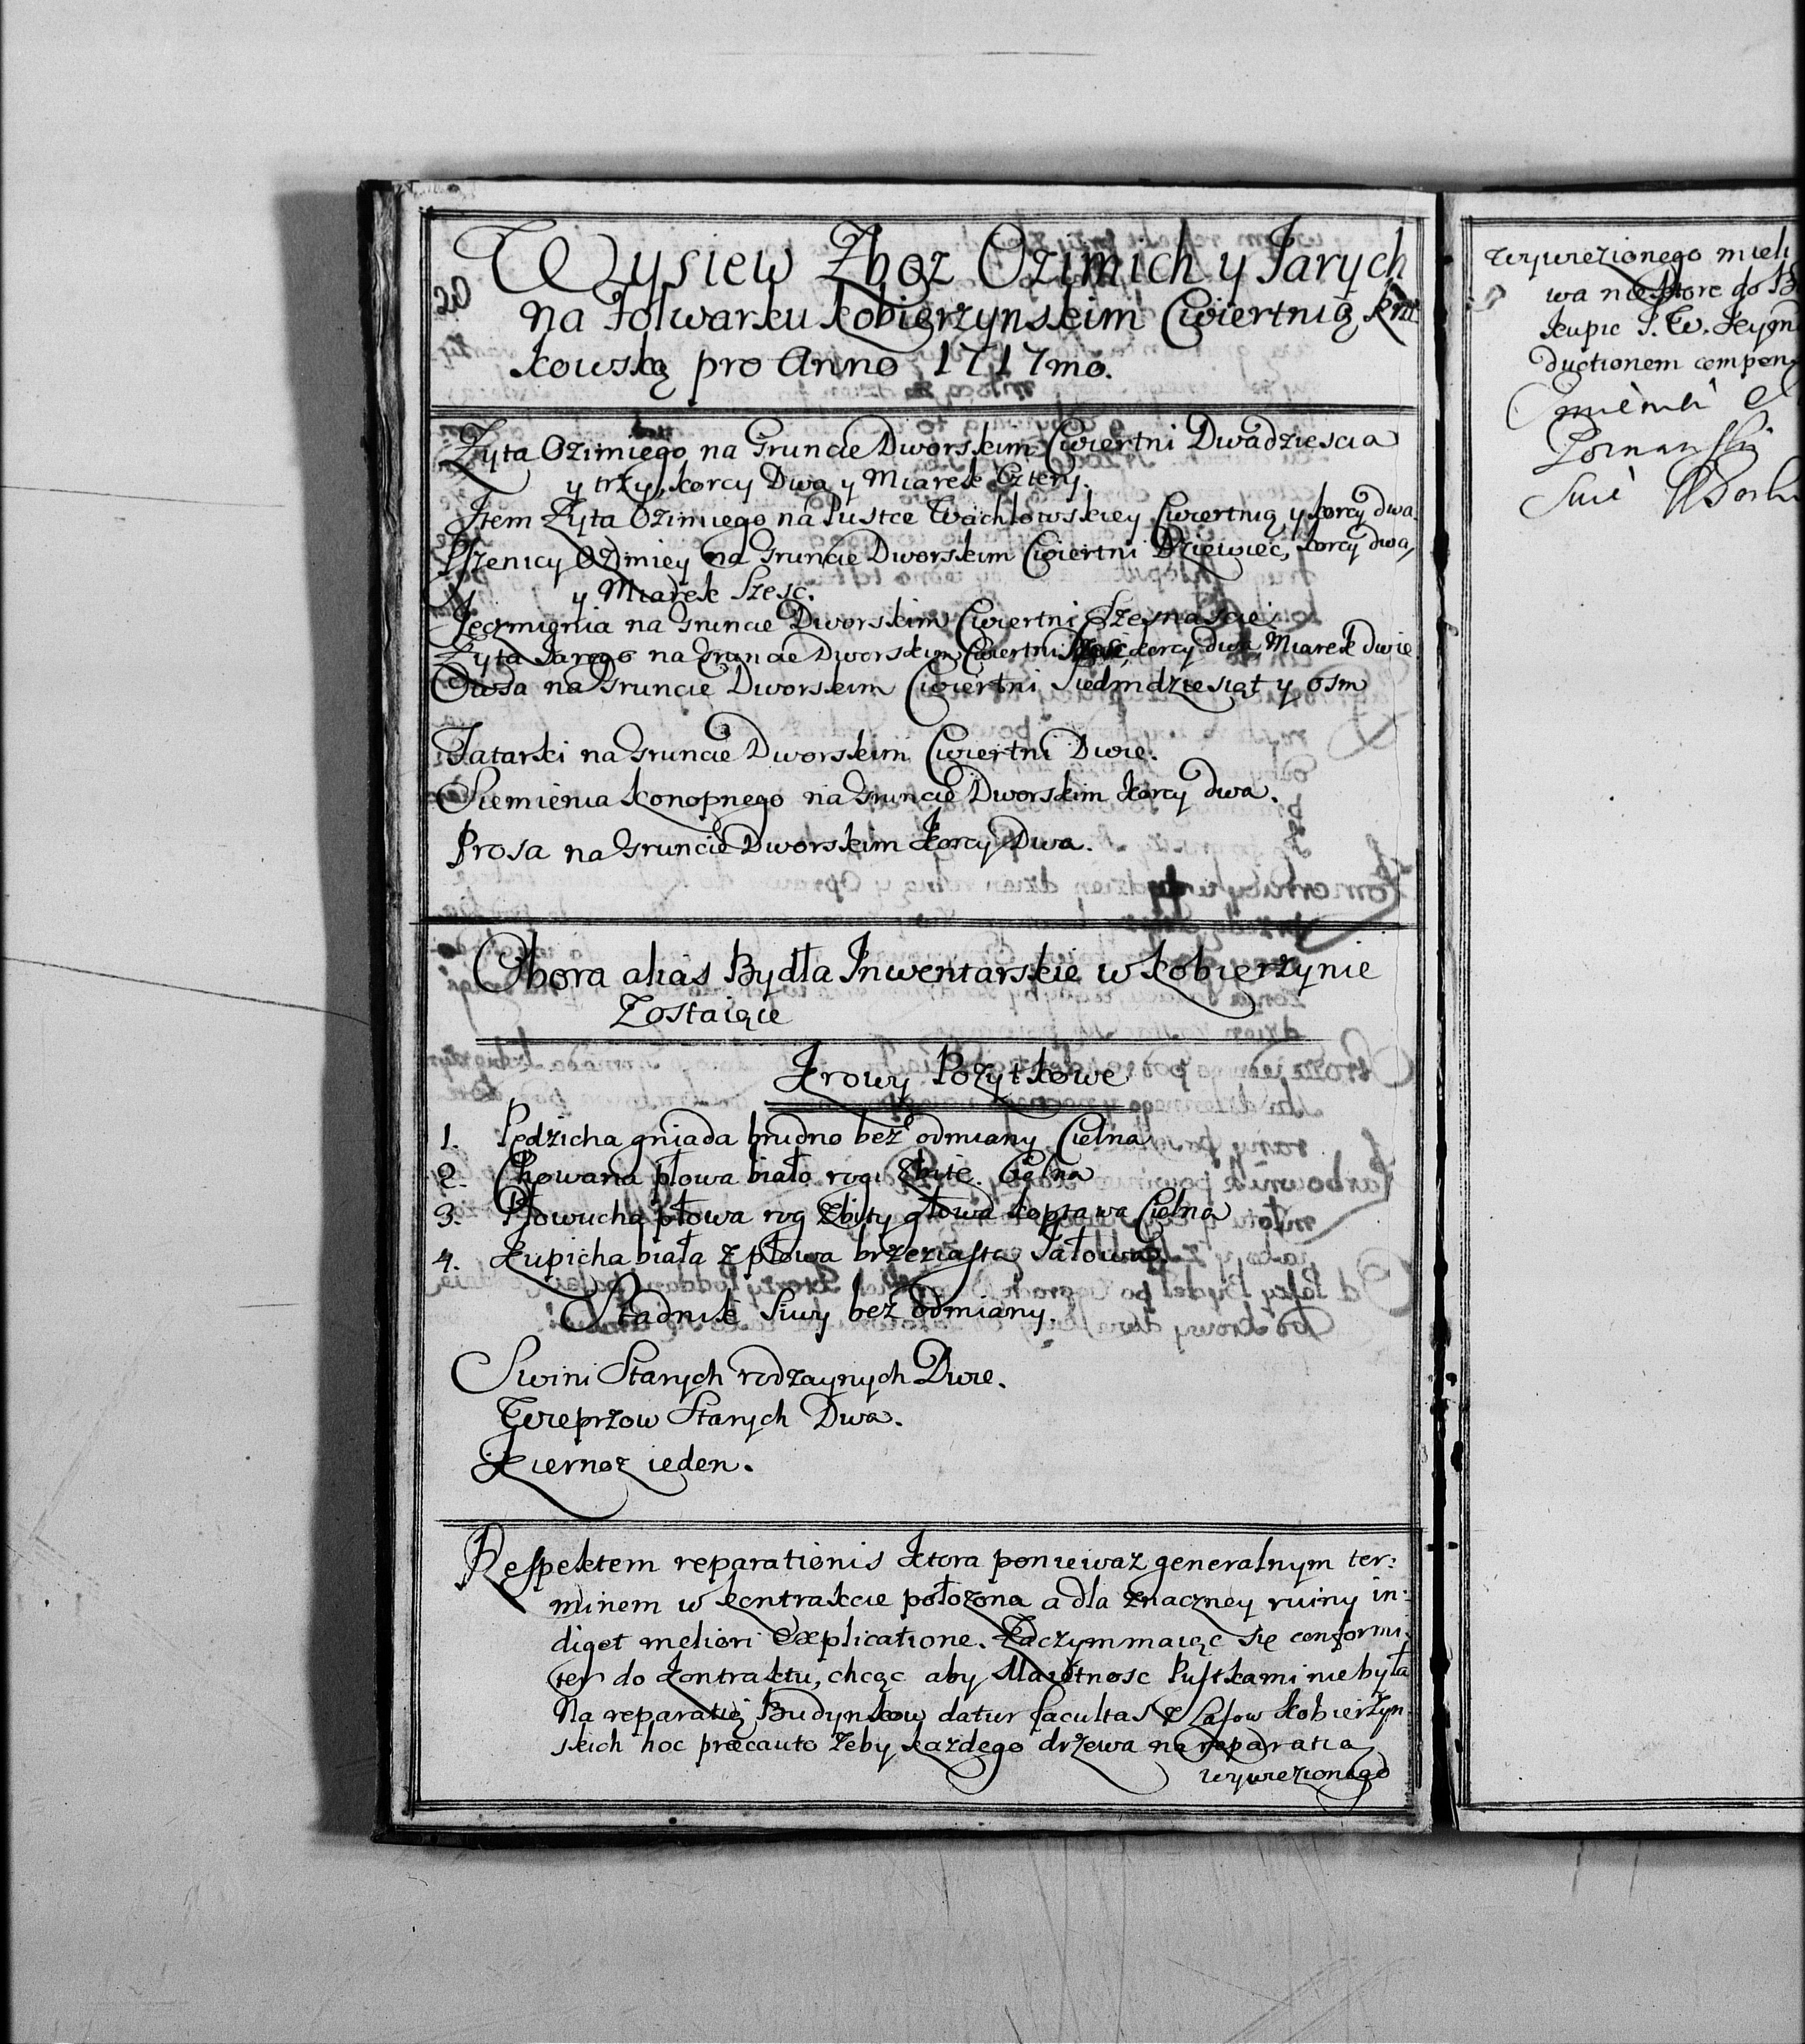 20
Wysiew Zboz Ozimich y Jarych
na Folwarku Kobierzynskim Cwiertnią Kra
kowską pro Anno 1717mo.
Zyta Ozimiego na Gruncie Dworskim Cwiertni Dwadziescia
y trzy, korcy Dwa y Miarek Cztery.
Item Zyta Ozimiego na Pustce Wachlowskiey Cwiertnią y korcy dwa.
Pszenicy Ozimiey na Gruncie Dworskim Cwiertni Dziewiec, korcy dwa,
y Miarek Szesc.
Jęczmienia na Gruncie Dworskim Cwiertni Szesnascie
Zyta Jarego na Gruncie Dworskim Cwiertni korcy dwa Miarek dwie
Owsa na Gruncie Dworskim Cwiertni Siedmdziesiąt y osm
Tatarki na Gruncie Dworskim Cwiertni Dwie.
Siemienia Konopnego na Gruncie Dworskim korcy dwa.
Prosa na Gruncie Dworskim korcy Dwa.
Obora alias Bydła Inwentarskie w Kobierzynie
Zostaiące
Krowy Pozytkowe
1. Pędzicha gniada brudno bez odmiany Cielna
2. Chowana płowa biało rogi zbite. Cielna
3. Płowucha płowa rog zbity głowa Cielna
4. Kupicha biała z płowa brzeziasta Jałowa
Stadnik Siwy bez odmiany.
Swini Starych rodzaynych Dwie.
Wieprzow Starych Dwa.
Kiernoz ieden.
Respektem reparationis ktora poniewaz generalnym ter:
minem w kontrakcie połozona a dla znaczney ruiny in:
diget meliori explicatione. Zaczym maiąc się conformi:
ter do Kontraktu, chcąc aby Maiętnosc Pustkami nie była
Na reparatią Budynkow datur facultas z Lasow Kobierzyn
skich hoc præcauto zeby kazdego drzewa na reparatia
wywiezionego
wywiezionego mieli
wa ktore do
kupic J. W.
ductionem compen